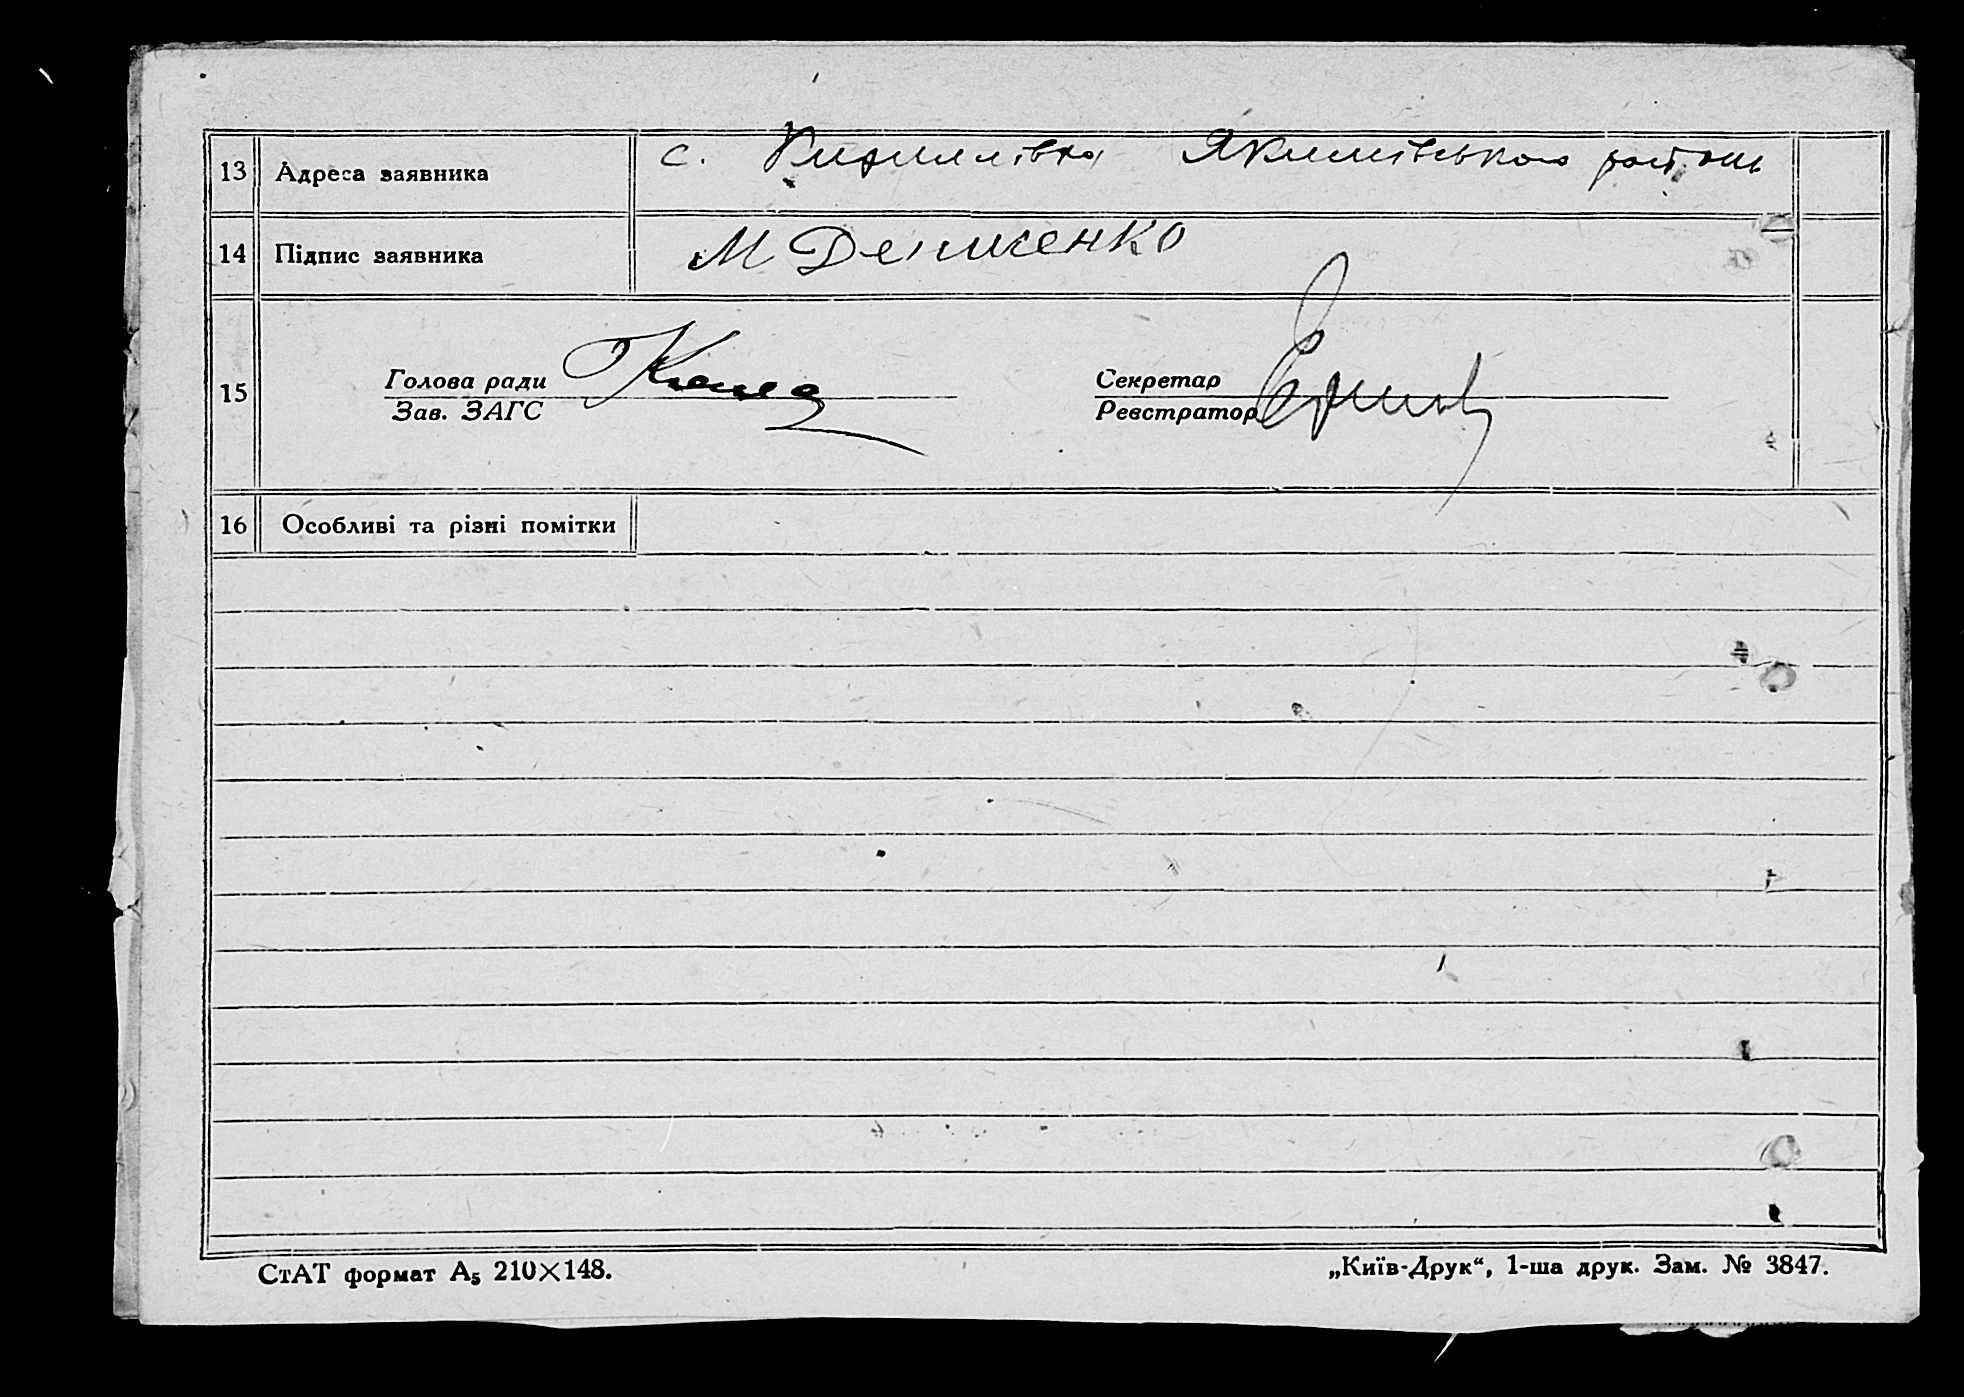 13 Адреса заявника с. Кирилівка Якимівського району
14 Підпис заявника М Денисенко
15 Голова ради Секретар
Зав. ЗАГС Реєстратор
16 Особливі та різні помітки
СтАТ формат А₅ 210×148. „Київ-Друк“, 1-ша друк. Зам. № 3847.